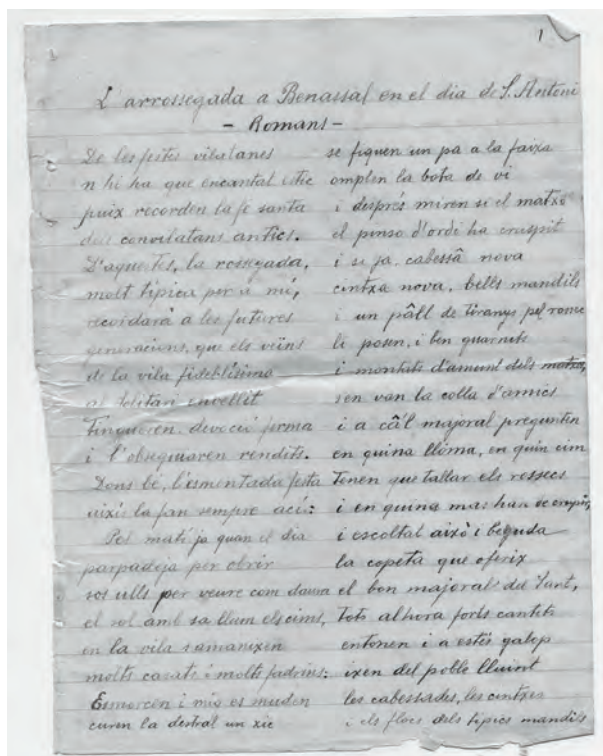 1
L'arrossegada a Benassal en el dia de S. Antoni
- Romans -
De les festes vilatanes
n hi ha que encantal
puix recorden la fe santa
dels convilatans antics.
D'aquestes, la rossegada,
molt típica per a mí,
recordarà a les futures
generacions, que els veïns
de la vila fidelíssima
al Solitari envellit
Tingueren devoció ferma
i l'obsequiaren rendits.
Dons bé, l'esmentada festa
aixís la fan sempre ací:
Pel matí ja quan el dia
parpadeja per obrir
sos ulls per veure com daura
el sol amb sa llum els cims,
en la vila samanixen
molts casats i molts fadrins:
Esmorcen i mig es muden
curen la destral un xic
se fiquen un pa a la faixa
omplen la bota de vi
i després miren si el matxo
el pinso d'ordi ha cruspit
i si ja, cabessâ nova
cintxa nova, bells mandils
i un pâll de tiranys pel
li posen, i ben guarnits
i montats d'amunt dels matxos,
sen van la colla d'amics
i a câ'l majoral pregunten
en quina llôma, en quin cim
Tenen que tallar els rossecs
i en quina mas han
i escoltat aixô i beguda
la copeta que oferix
el bon majoral del Sant,
Tots alhora forts cantits
entonen i a estés galop
ixen del poble lluint
les cabessades, les cintxes
i els flocs dels típics mandils